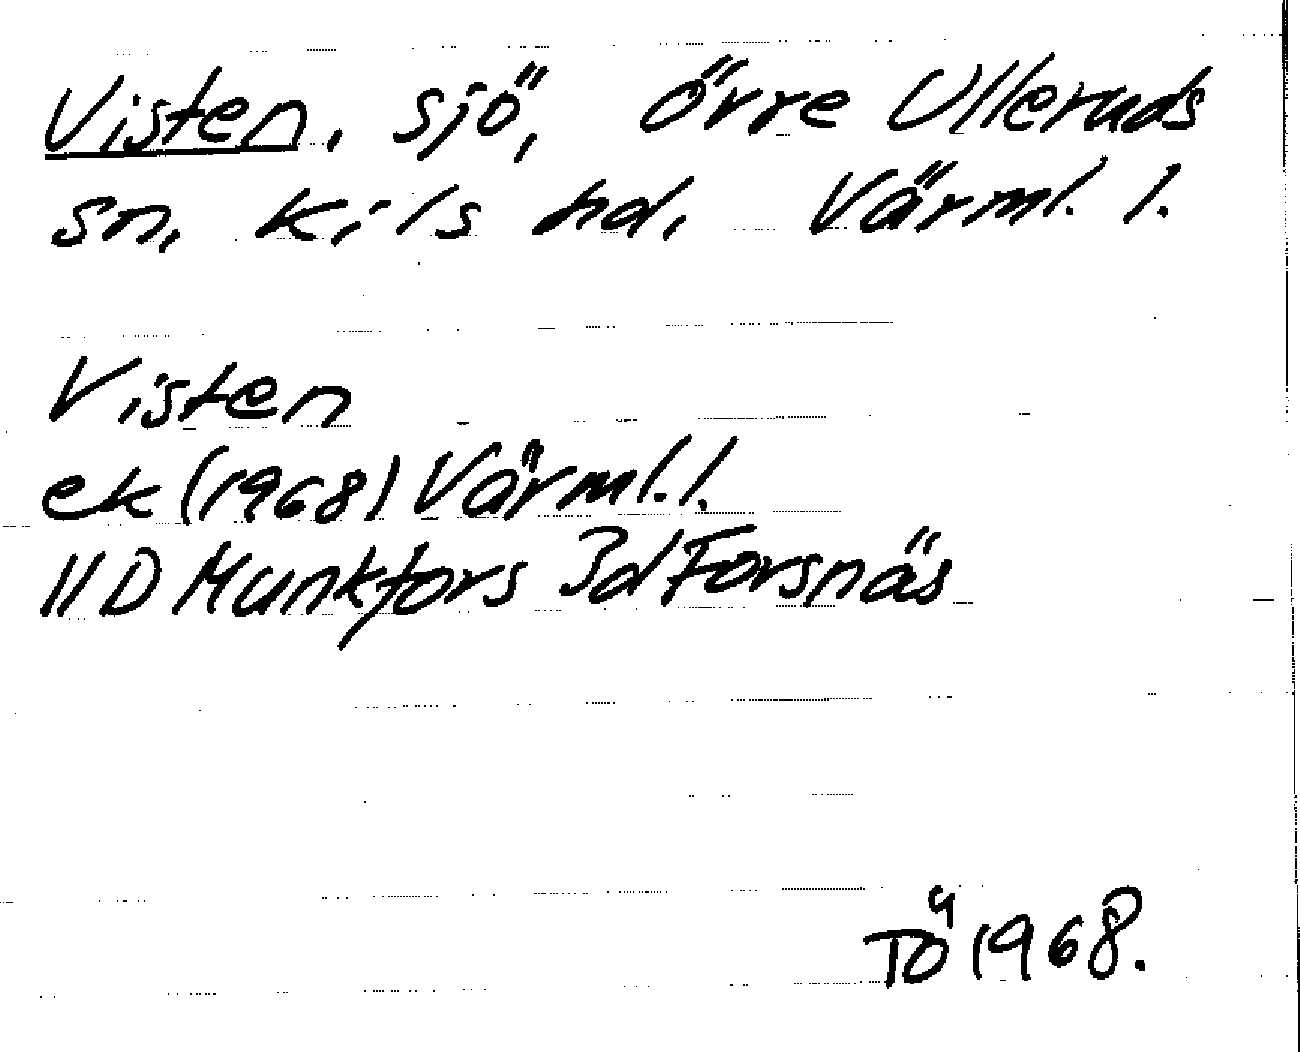 Visten, sjö, Övre Ulleruds
sn, Kils hd, Värml. l.
Visten
ek (1968) Värml. l.
11D Munkfors 3d Forsnäs
TÖ 1968.